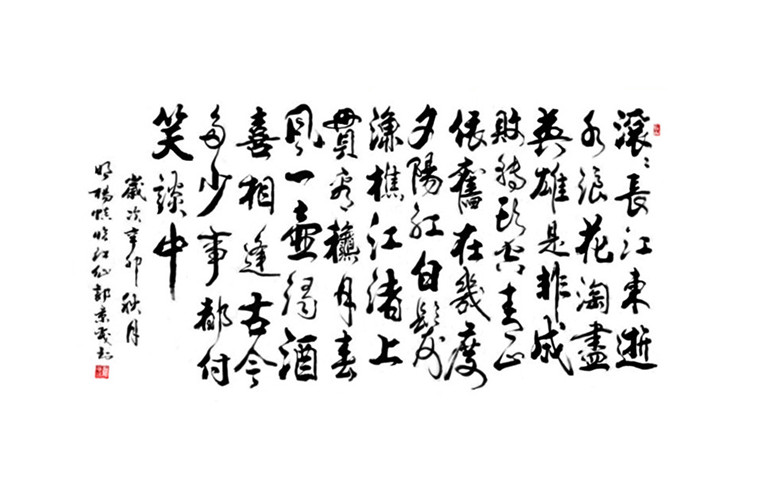 滾々長江東逝
水浪花淘盡
英雄是非成
敗轉頭空青山
依舊在幾度
夕陽紅白髮
漁樵江渚上
貫看龝月春
風一壺濁酒
喜相逢古今
多少事都付
笑談中
歲次辛卯秋月
明楊慎臨江仙書